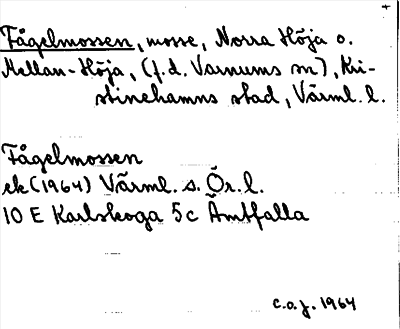 Fågelmossen, mosse, Norra Höja o.
Mellan-Höja, (f.d. Varnums sn), Kri-
stinehamns stad, Värml. l.
Fågelmossen
ek (1964) Värml. s. Ör. l.
10 E Karlskoga 5c Ämtfalla
c.a.j. 1964